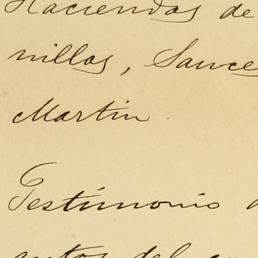 Haciendas de
nillas, Sauce
Martin.
Testimonio
autos del